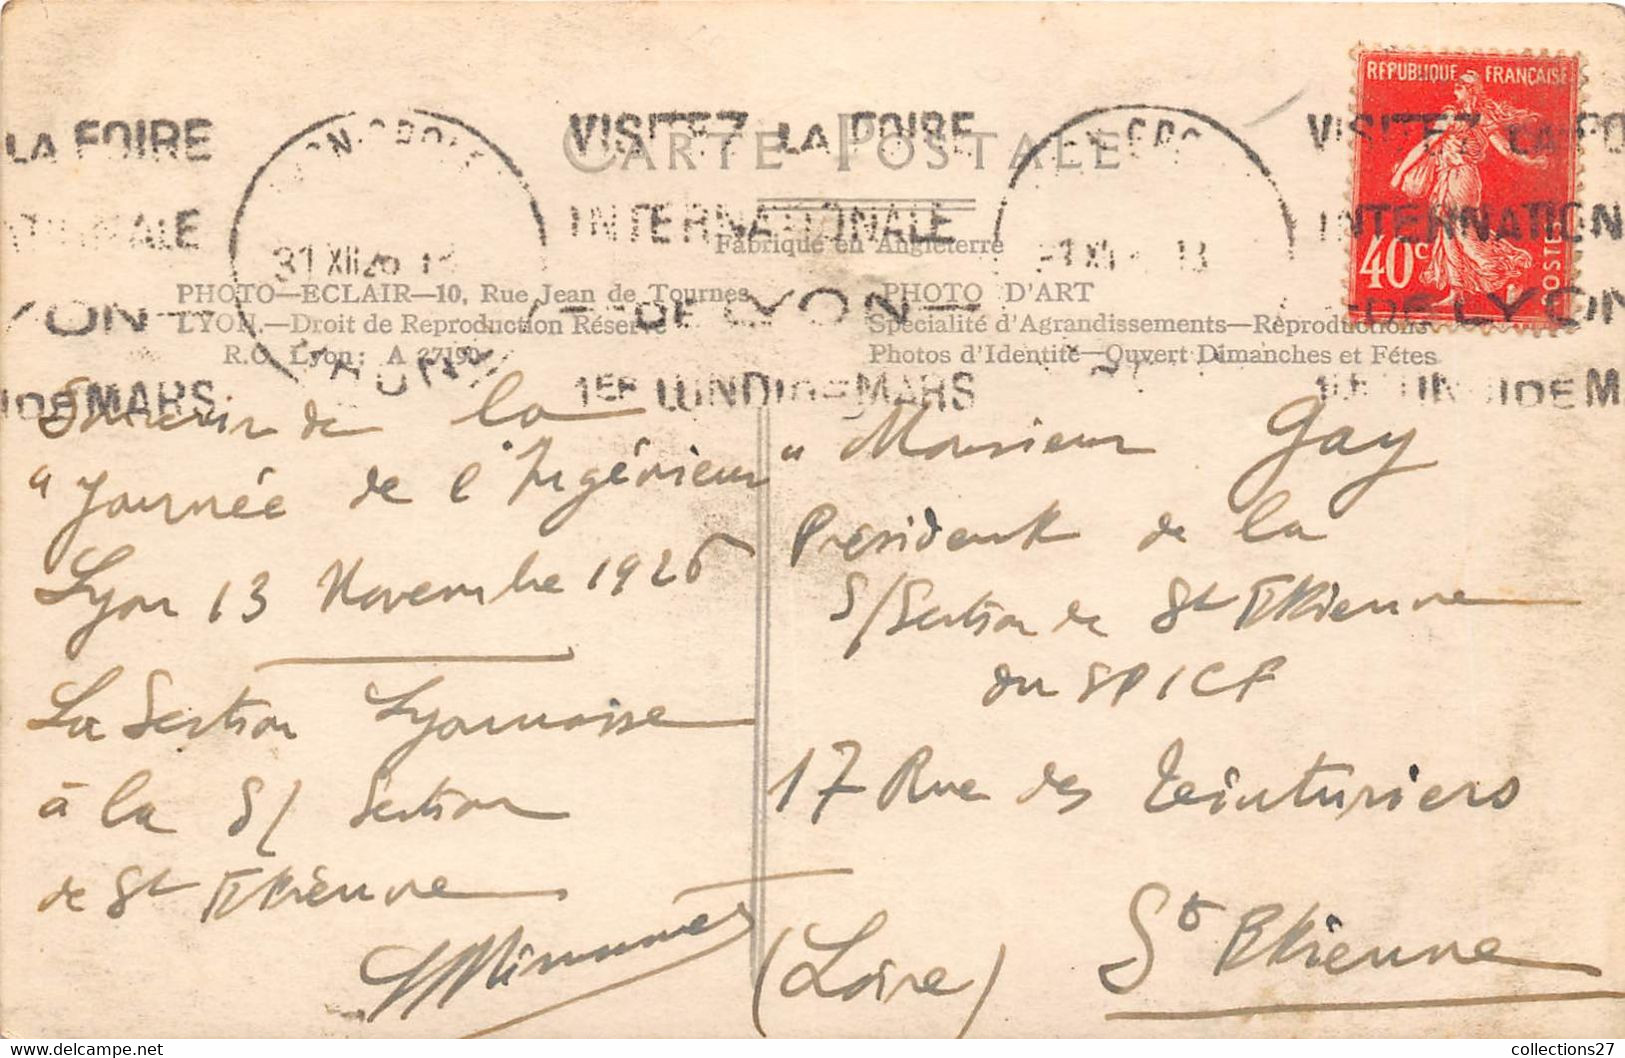 LA FOIRE
VISITEZ LA FOIRE
VISITEZ LA FO
INTERNATIONALE
INTERNATION
DE LYON
DE LYON
YON
1ER LUNDI DE MARS
DE MARS
CARTE POSTALE
Fabriqué en Angleterre
REPUBLIQUE FRANÇAISE
40c
POSTES
31 XII 26
PHOTO—ECLAIR—10, Rue Jean de Tournes
LYON.—Droit de Reproduction Réservé
R.C. Lyon: A 27190
PHOTO D'ART
Spécialité d'Agrandissements—Reproductions
Photos d'Identité—Ouvert Dimanches et Fêtes
Souvenir de la
"Journée de l'Ingénieur"
Lyon 13 Novembre 1926
La Section Lyonnaise
à la S/ Section
de St Etienne
Monsieur Gay
President de la
S/Section de St Etienne
du SPICF
17 Rue des Teinturiers
St Etienne
(Loire)
collections27